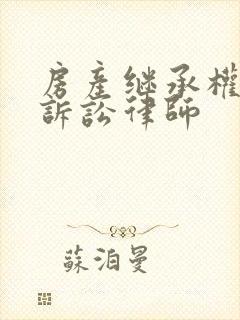 房產继承權
訴訟律師
蘇泊曼